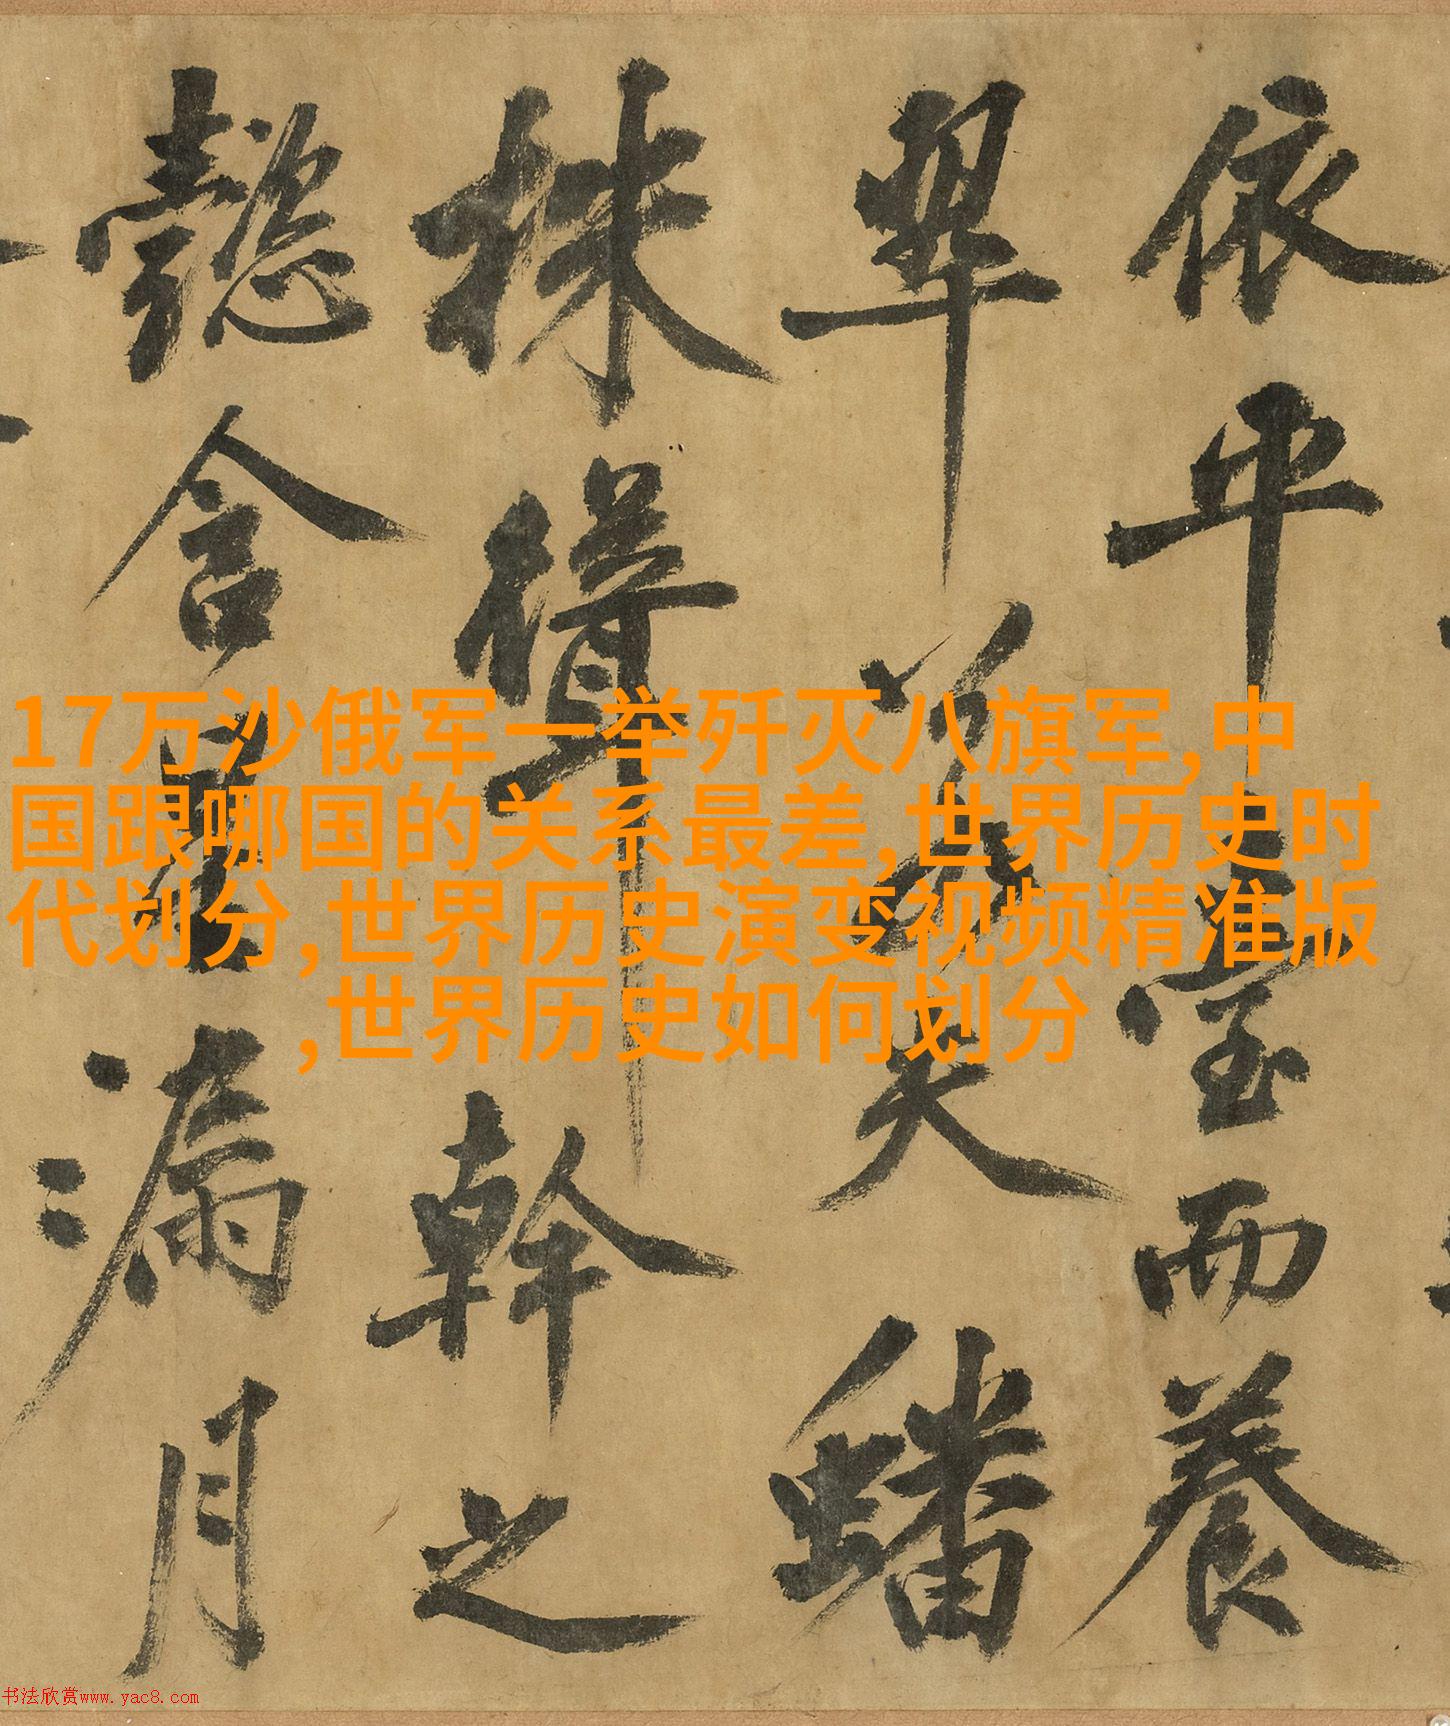 依平臺而養
翠若夫蟠
株聳幹之
懿含星漏月
17万沙俄军一举歼灭八旗军,中
国跟哪国的关系最差,世界历史时
代划分,世界历史演变视频精准版
,世界历史如何划分
书法欣赏www.yac8.com